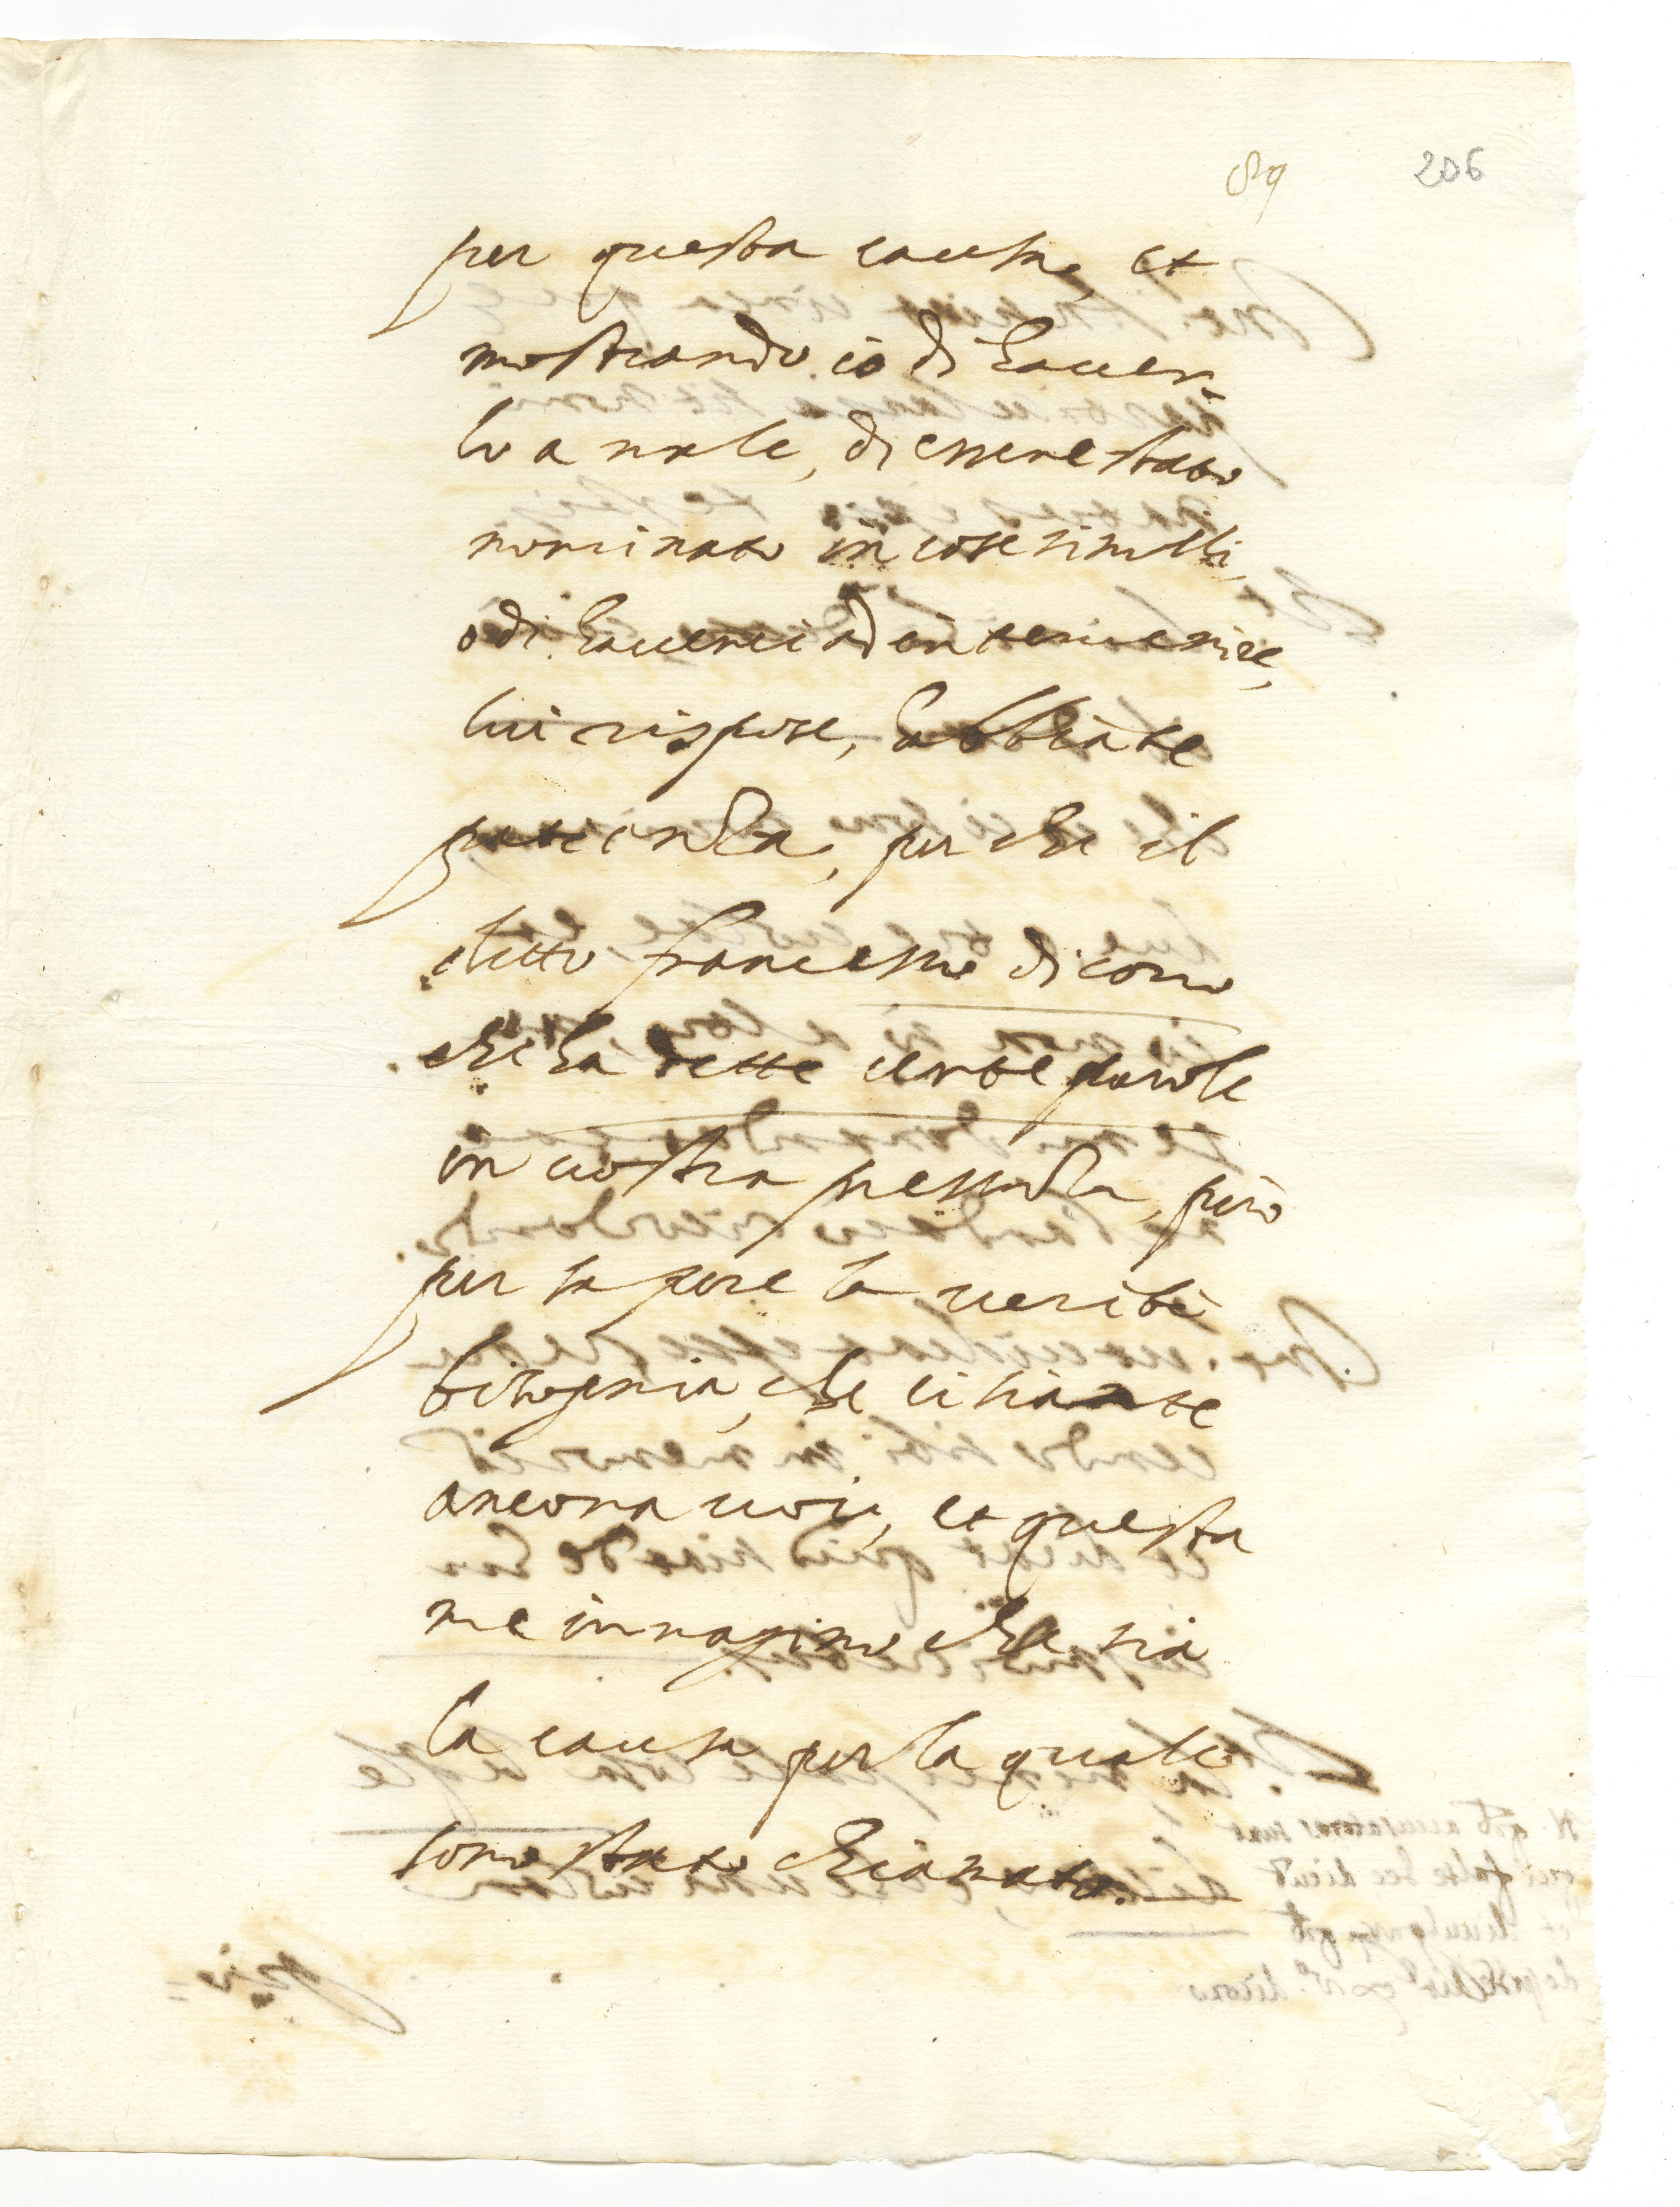 89 206
per questa causa, et
mostrando io di haver-
lo a male, di essere stato
nominato in cose simili,
o di haverci ad intervenire,
lui rispose, habbiate
patienza, perche il
detto francesco dicono
che ha dette certe parole
in vostra presenza, però
per sapere la verità
bisogna, che ci siate
ancora voi, et questa
me innagino che sia
la causa per la quale
sono stato chiamato.